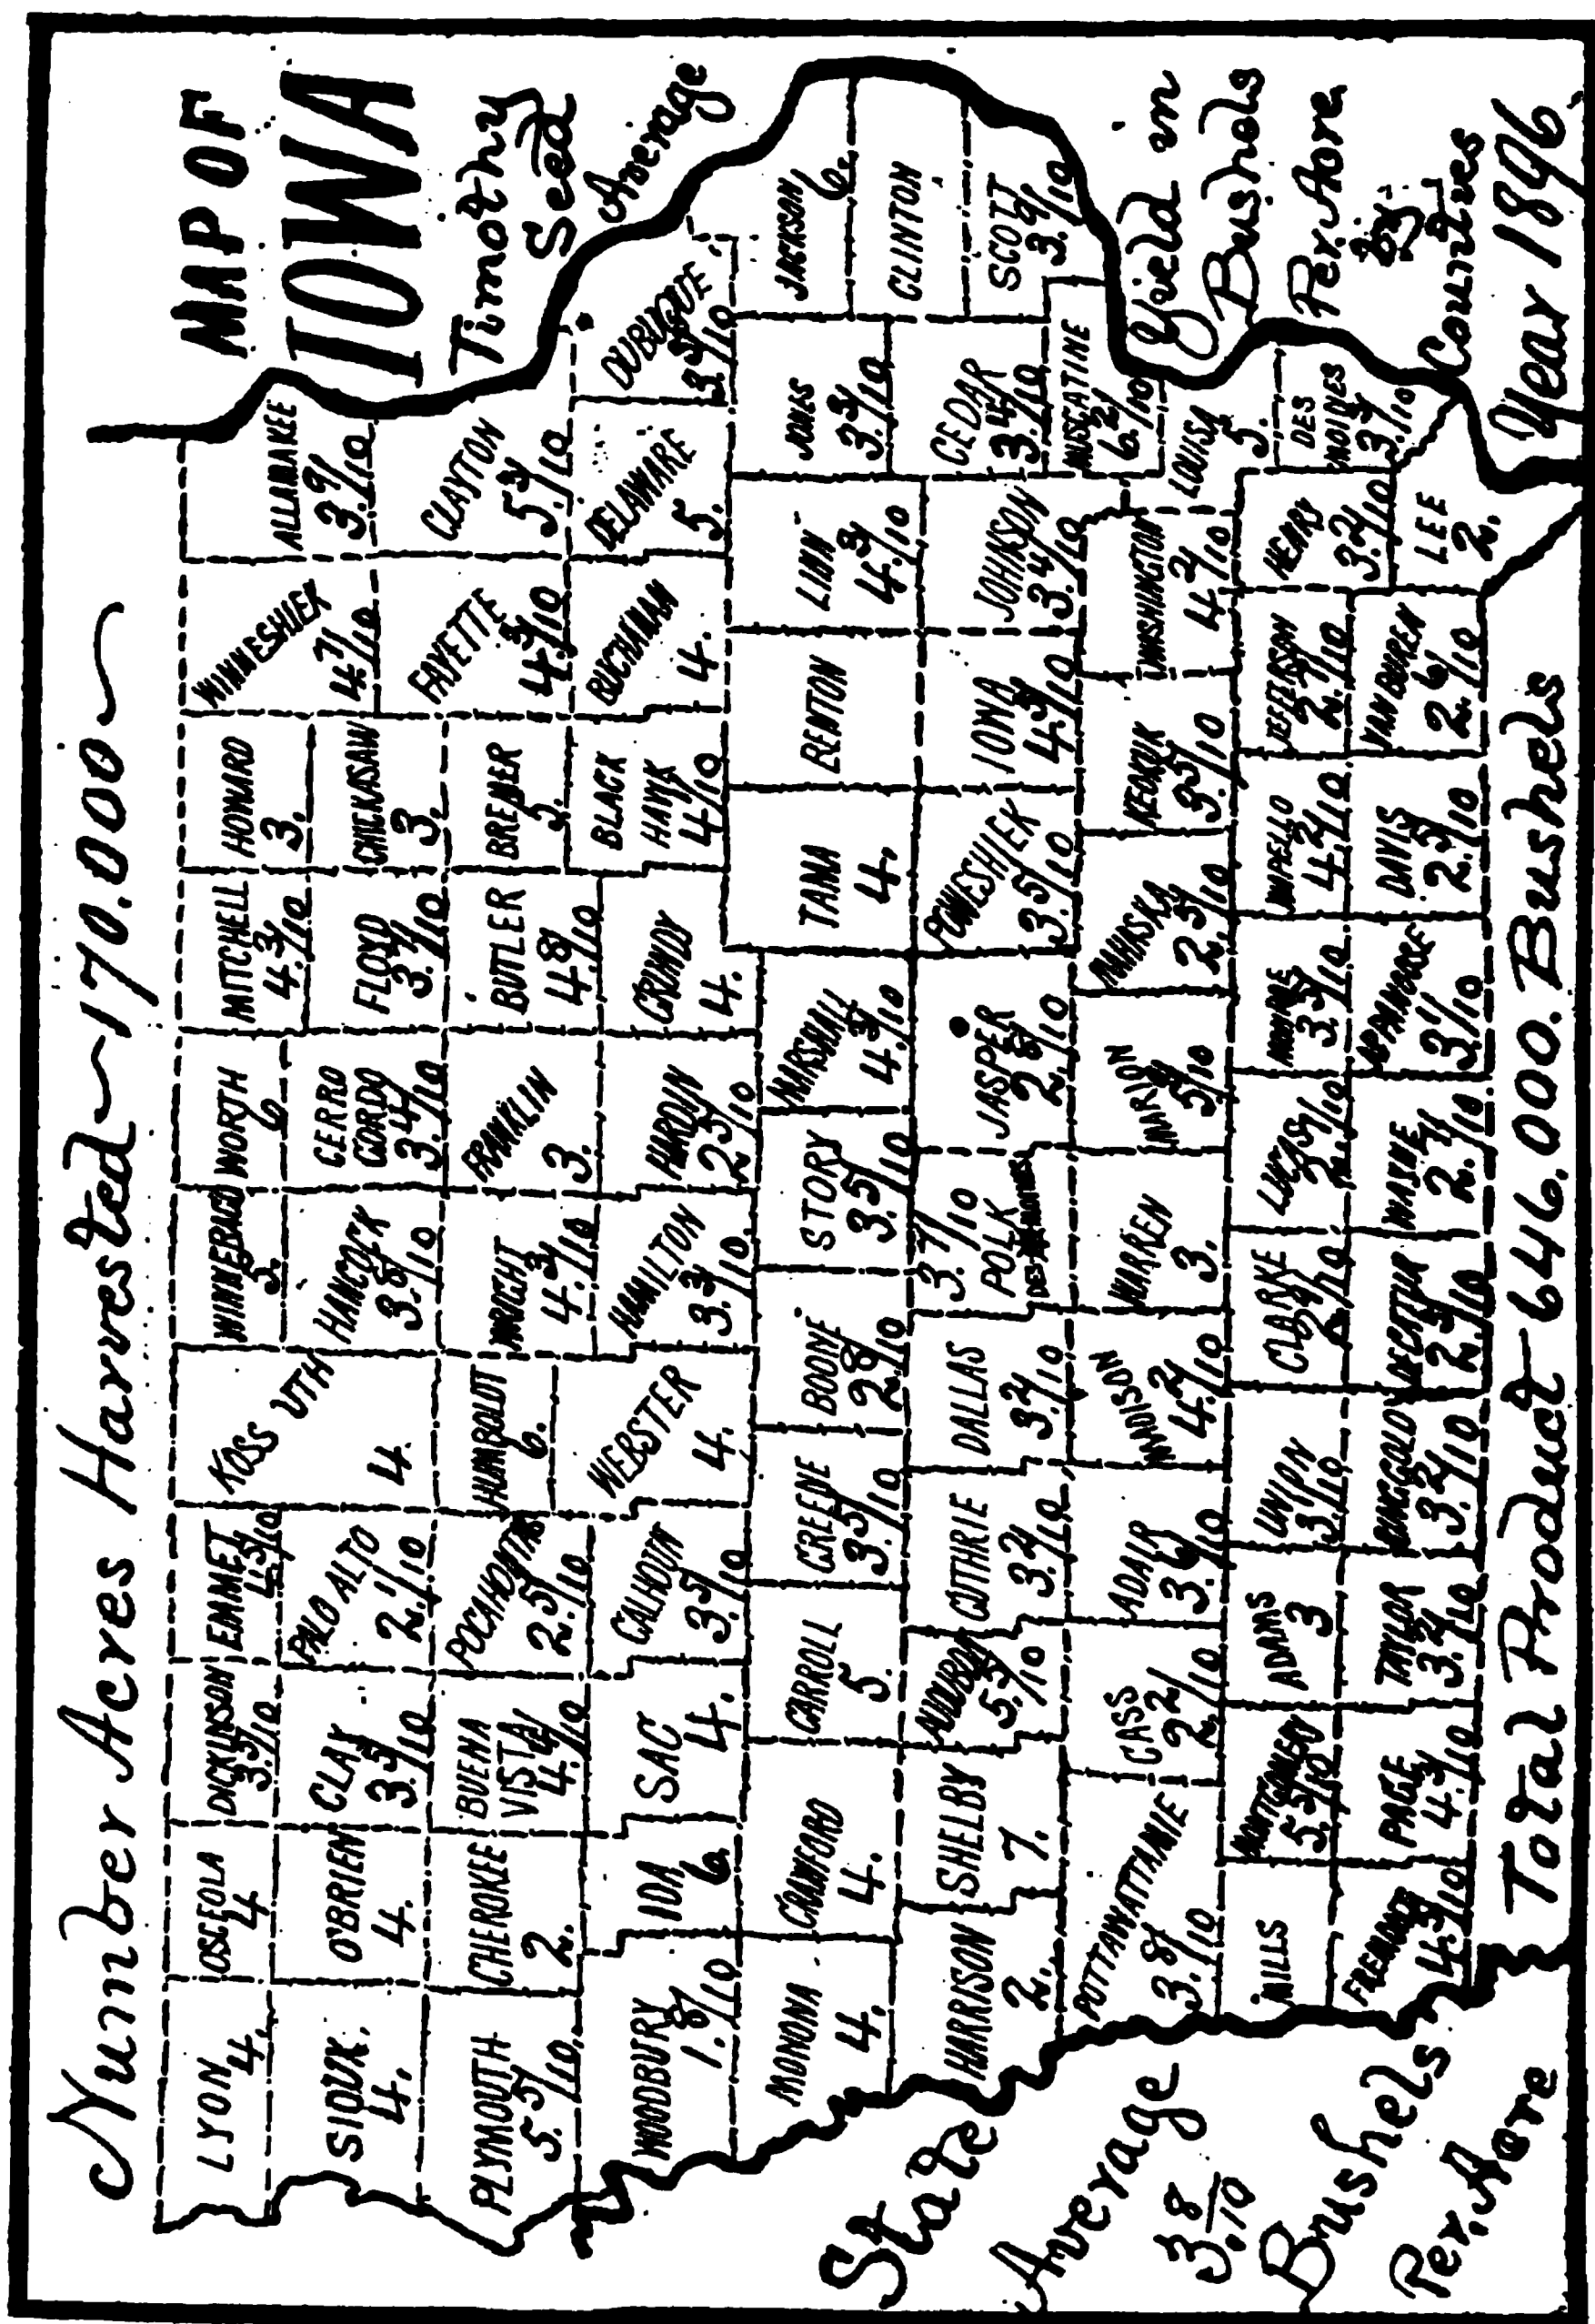 Number Acres Harvested 170.000
MAP OF
IOWA
Timothy
Seed
Average
Yield in
Bushels
Per. Acre
by
Counties
Year 1896
LYON
4.
OSCEOLA
4
DICKINSON
3.5/10
EMMET
4.5/10
KOSSUTH
4
WINNEBAGO
5.
WORTH
6
MITCHELL
4.3/10
HOWARD
3.
WINNESHIEK
4.7/10
ALLAMAKEE
3.9/10
SIOUX.
4.
O'BRIEN
4.
CLAY
3.5/10
PALO ALTO
2.1/10
HANCOCK
3.8/10
CERRO
GORDO
3.4/10
FLOYD
3.7/10
CHICKASAW
3.
FAYETTE
4.3/10
CLAYTON
5.3/10
PLYMOUTH
5.5/10.
CHEROKEE
2.
BUENA
VISTA
4.6/10
POCAHONTAS
2.5/10
HUMBOLDT
6.
WRIGHT
4.3/10
FRANKLIN
3.
BUTLER
4.8/10
BREMER
5.
WOODBURY
1.8/10
IDA
6.
SAC
4.
CALHOUN
3.5/10
WEBSTER
4.
HAMILTON
3.3/10.
HARDIN
2.5/10
GRUNDY
4.
BLACK
HAWK
4/10
BUCHANAN
4.
DELAWARE
5.
DUBUQUE
3.5/10
MONONA
4.
CRAWFORD
4.
CARROLL
5.
GREENE
3.5/10
BOONE
2.8/10
STORY
3.5/10
MARSHALL
4.3/10
TAMA
4.
BENTON
LINN
4.3/10
JONES
3.3/10
JACKSON
6.
CLINTON
HARRISON
2.
SHELBY
7.
AUDUBON
5.5/10
GUTHRIE
3.2/10
DALLAS
3.2/10
3.7/10
POLK
DES MOINES
JASPER
2.8/10
POWESHIEK
3.5/10
IOWA
4.5/10
JOHNSON
3.4/10
CEDAR
3.4/10
SCOTT
3.9/10
MUSCATINE
6.2/10
POTTAWATTAMIE
3.8/10
CASS
2.2/10
ADAIR
3.6/10
MADISON
4.2/10
WARREN
3.
MARION
MAHASKA
2.5/10
KEOKUK
3.5/10
WASHINGTON
4.2/10
LOUISA
5.
MILLS
MONTGOMERY
5.5/10
ADAMS
3
UNION
3/10
CLARKE
LUCAS
MONROE
3.3/10
WAPELLO
4.2/10
JEFFERSON
HENRY
3.2/10
DES
MOINES
3.3/10
FREMONT
PAGE
4.3/10
TAYLOR
3.2/10
RINGGOLD
3.2/10
DECATUR
2.5/10
WAYNE
2.7/10
APPANOOSE
3.1/10
DAVIS
2.5/10
VAN BUREN
2.6/10
LEE
2.
State
Average
3.8/10
Bushels
Per. Acre
Total Product 646.000. Bushels